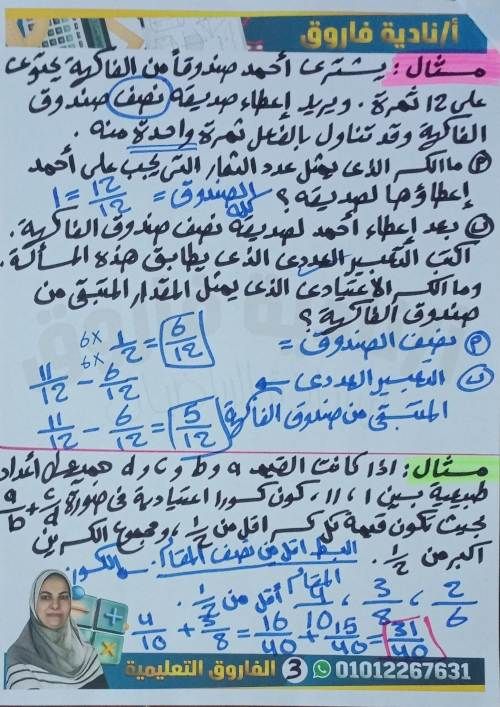 أ/نادية فاروق
مثال: يشترى أحمد صندوقاً من الفاكهة يحتوى
على 12 ثمرة. ويريد إعطاء صديقه نصف صندوق
الفاكهة وقد تناول بالفعل ثمرة واحدة منه.
ما الكسر الذى يمثل عدد الثمار التى يجب على أحمد
إعطاؤها لصديقه؟ الصندوق كله = 12/12 = 1
ب بعد إعطاء أحمد لصديقه نصف صندوق الفاكهة.
اكتب التعبير العددى الذى يطابق هذه المسألة.
وما الكسر الاعتيادى الذى يمثل المقدار المتبقى من
صندوق الفاكهة؟
نصف الصندوق = 6x 1/2 6x = 6/12
ب التعبير العددى 11/12 - 6/12
المتبقى من صندوق الفاكهة 11/12 - 6/12 = 5/12
مثال: اذا كانت القيم a و b و c و d هى أعداد
طبيعية بين 1 ، 11 ، كون كسورا اعتيادية فى صورة a/b + c/d
بحيث تكون قيمة كل كسر اقل من 1/2 ، ومجموع الكسرين
اكبر من 1/2 .
البسط اقل من نصف المقام. الكسور
المقام أقل من 1/2 . 4/10 ، 3/8 ، 2/6
4/10 + 3/8 = 16/40 + 15/40 = 31/40
الفاروق التعليمية 3 01012267631